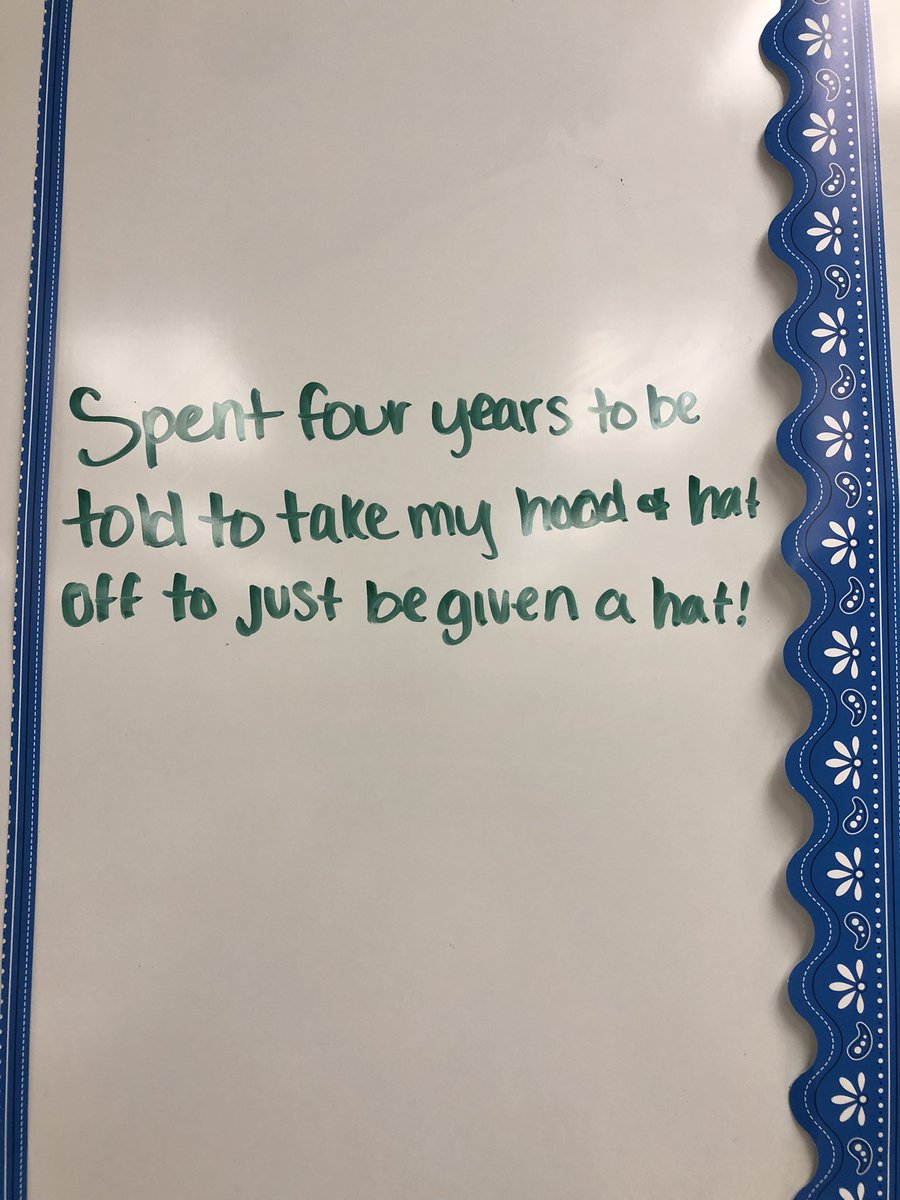 Spent four years to be
told to take my hood & hat
off to just be given a hat!